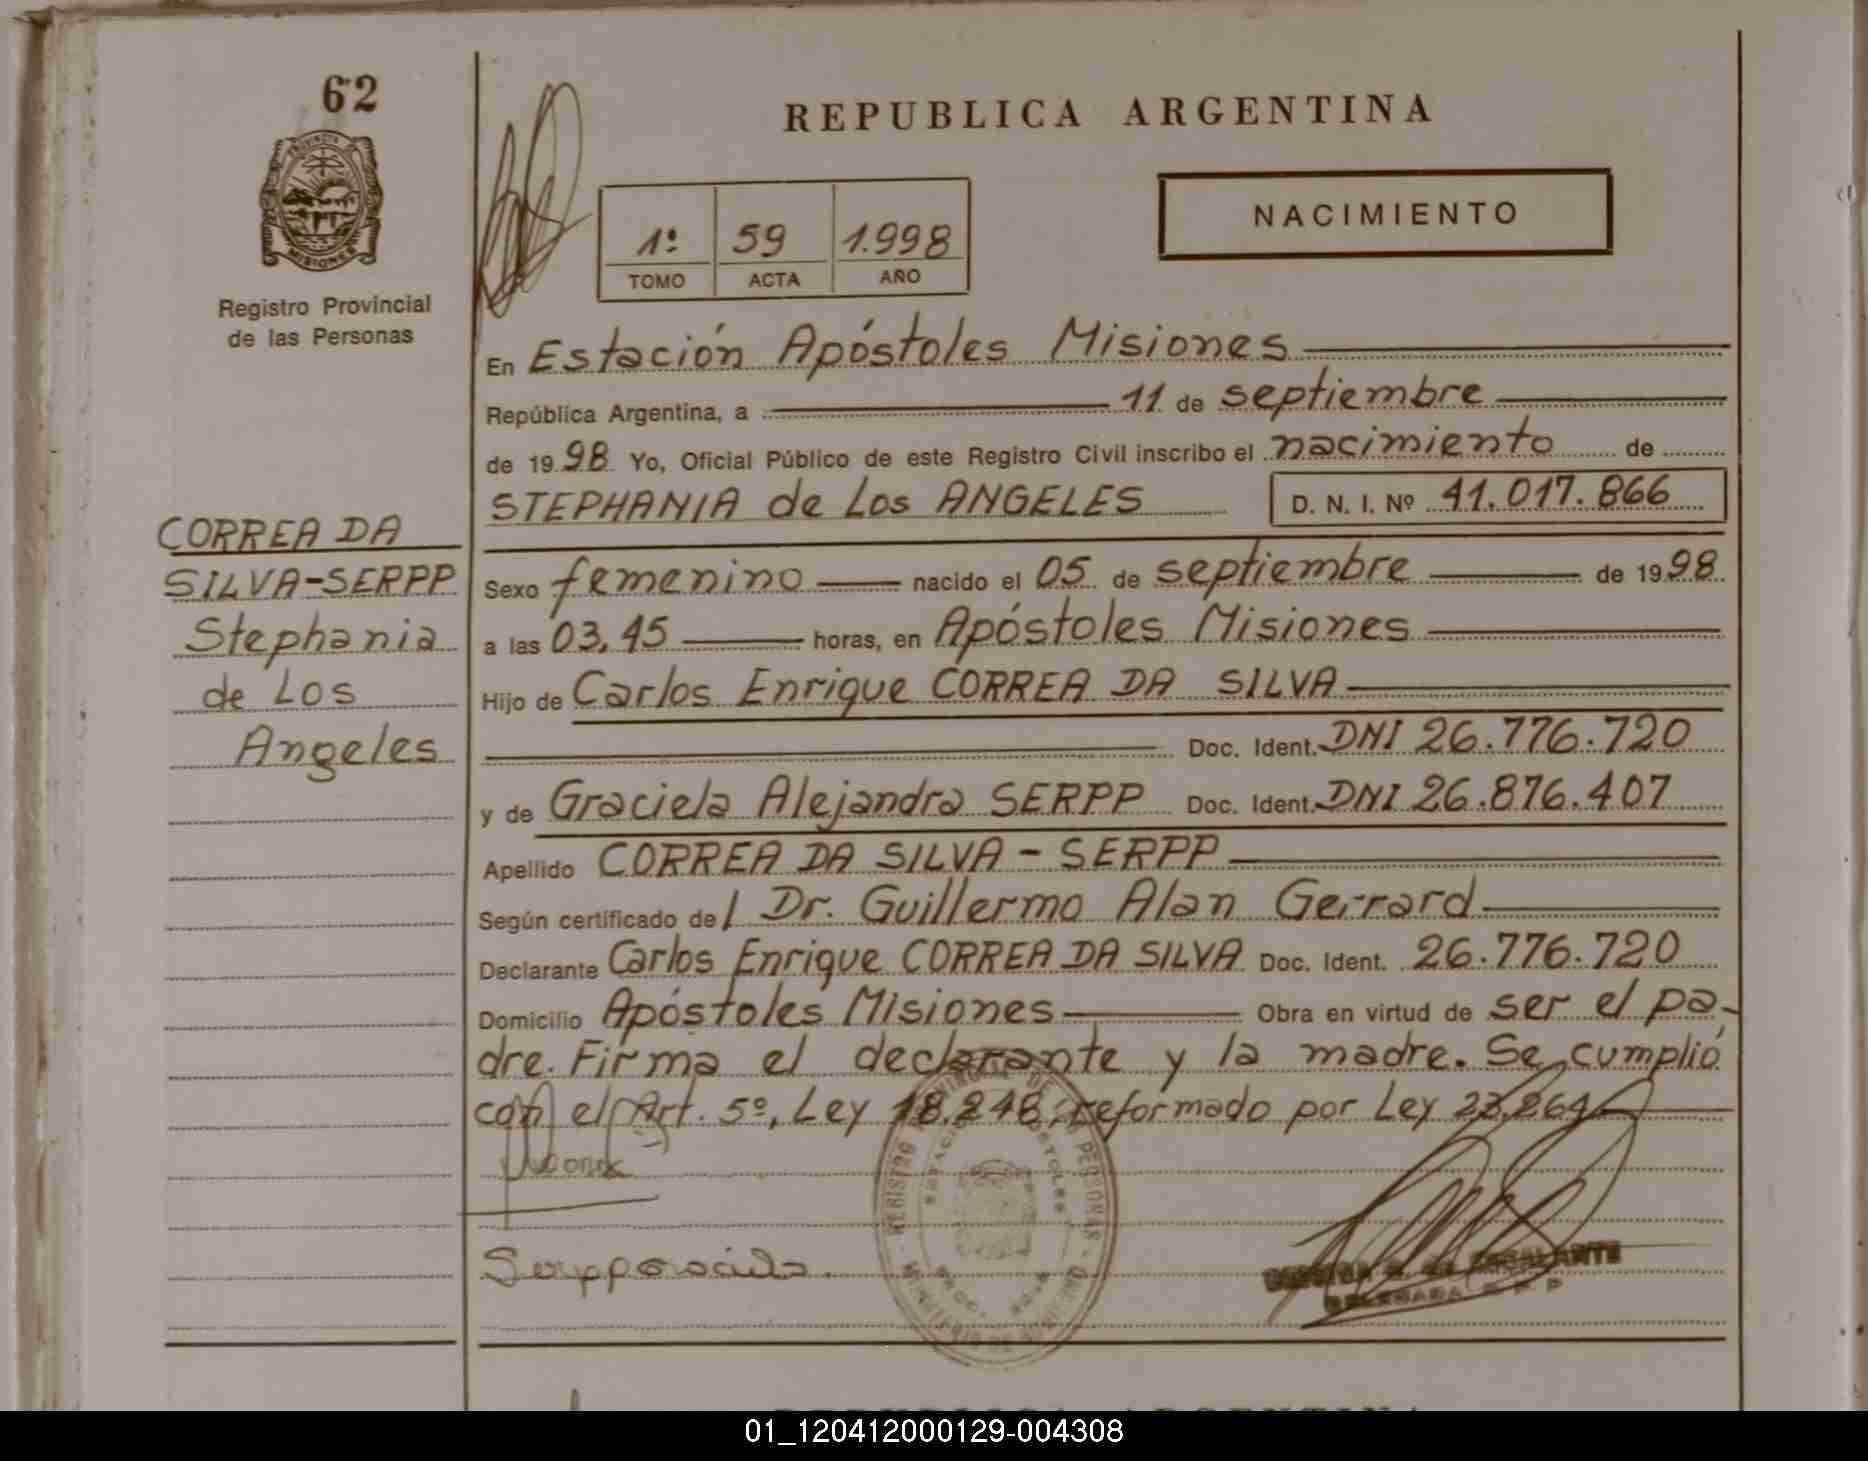 62
REPUBLICA ARGENTINA
NACIMIENTO
1º 59 1.998
TOMO ACTA AÑO
MISIONES
Registro Provincial
de las Personas
En Estación Apóstoles Misiones
República Argentina, a 11 de septiembre
de 1998 Yo, Oficial Público de este Registro Civil inscribo el nacimiento de
STEPHANIA de Los ANGELES D. N. I. Nº 41.017.866
CORREA DA
SILVA-SERPP
Stephania
de Los
Angeles
Sexo femenino nacido el 05 de septiembre de 1998
a las 03,45 horas, en Apóstoles Misiones
Hijo de Carlos Enrique CORREA DA SILVA
Doc. Ident. DNI 26.776.720
y de Graciela Alejandra SERPP Doc. Ident. DNI 26.876.407
Apellido CORREA DA SILVA - SERPP
Según certificado de/ Dr. Guillermo Alan Gerrard
Declarante Carlos Enrique CORREA DA SILVA Doc. Ident. 26.776.720
Domicilio Apóstoles Misiones Obra en virtud de ser el pa-
dre. Firma el declarante y la madre. Se cumplió
con el Art. 5º, Ley 18.248, reformado por Ley 23.264
REGISTRO PROVINCIAL DE LAS PERSONAS
ESCALANTE
DELEGADA R.P.P
REPUBLICA ARGENTINA
01_120412000129-004308